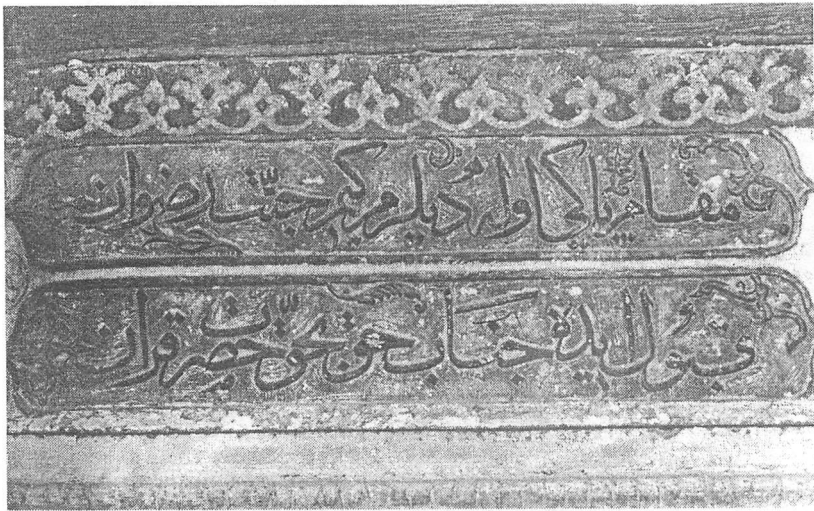 مقام پاكى اوله ديلرم كه جنّت رضوان
قبول ايده جناب حق بحقّ حضرت قران